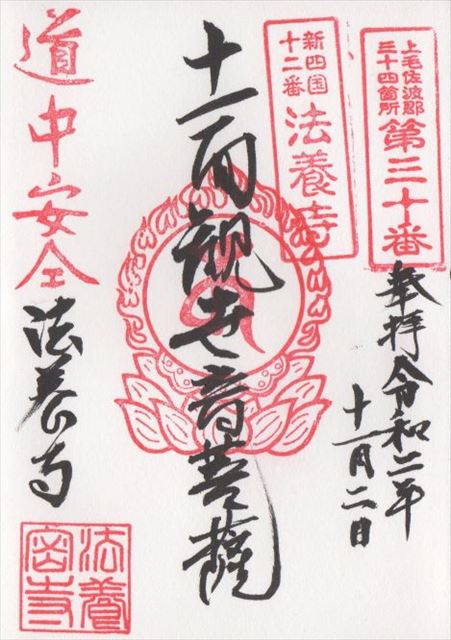 上毛佐波郡
三十四箇所
第三十番
奉拝令和二年
十一月二日
新四国
十二番
法養寺
十一面観世音菩薩
道中安全
法養寺
法養
密寺